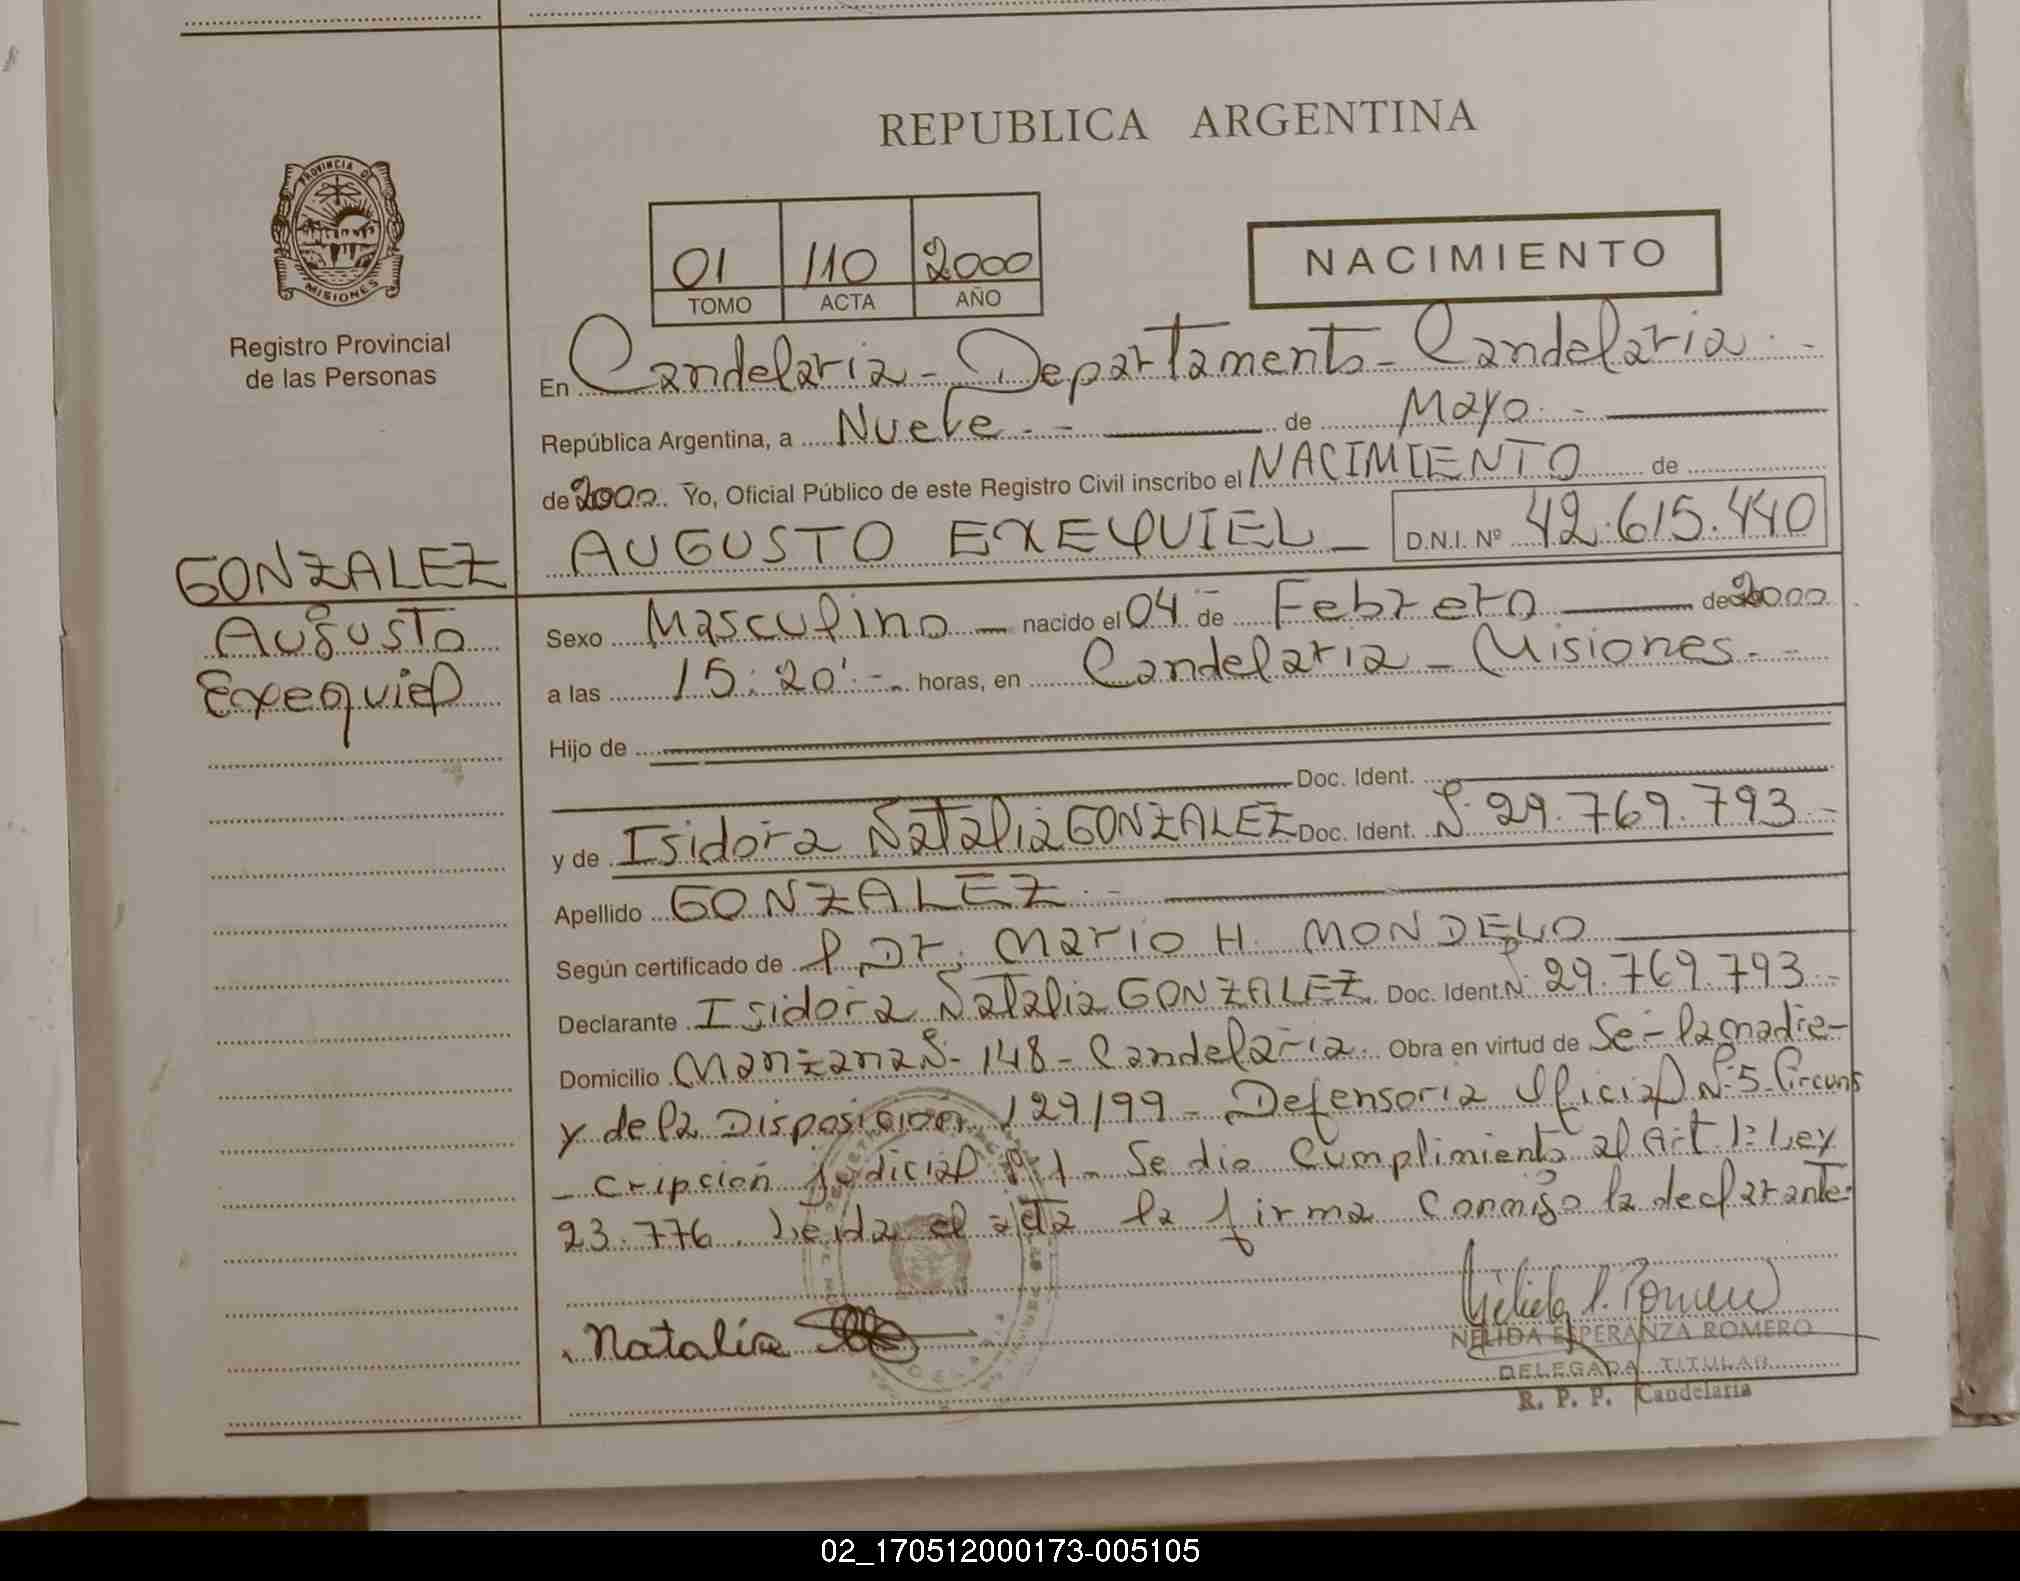 REPUBLICA ARGENTINA
PROVINCIA DE
MISIONES
Registro Provincial
de las Personas
01 110 2000
TOMO ACTA AÑO
NACIMIENTO
En Candelaria - Departamento - Candelaria. -
República Argentina, a Nueve. - - de Mayo. -
de 2000. Yo, Oficial Público de este Registro Civil inscribo el NACIMIENTO de
AUGUSTO EXEQUIEL - D.N.I. Nº 42.615.440
GONZALEZ
Augusto
Exequiel
Sexo Masculino - nacido el 04 de Febrero de 2000
a las 15:20'.- horas, en Candelaria - Misiones. -
Hijo de
Doc. Ident.
y de Isidora Natalia GONZALEZ Doc. Ident. Nº 29.769.793 -
Apellido GONZALEZ. -
Según certificado de l Dr. Mario H. MONDELO
Declarante Isidora Natalia GONZALEZ. Doc. Ident. Nº 29.769.793. -
Domicilio Manzana Nº 148 - Candelaria. Obra en virtud de Ser la madre -
y de la Disposicion 129/99 - Defensoria Oficial Nº 5 - Circuns
- cripción Judicial Nº 1 - Se dio Cumplimiento al Art. 1º Ley
23.776. Leida el acta la firma Conmigo la declarante.
Natalia
NELIDA ESPERANZA ROMERO
DELEGADA TITULAR
R. P. P. Candelaria
02_170512000173-005105